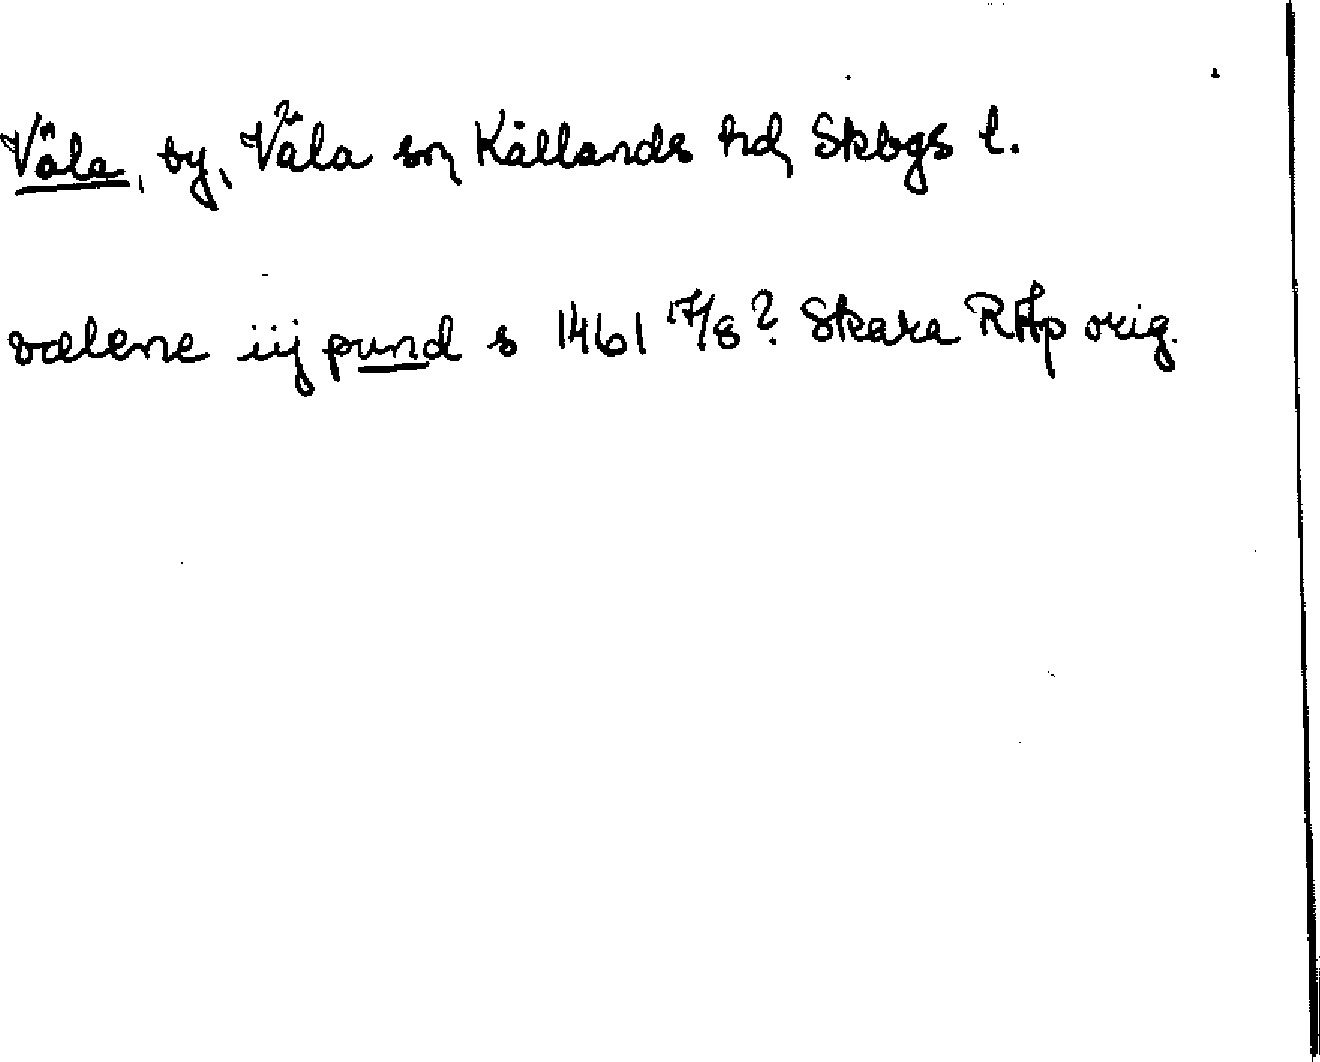 Väla, by, Väla sn, Kållands hd, Skbgs l.
vælene iij pund s 1461 17/8? Skara RAp orig.